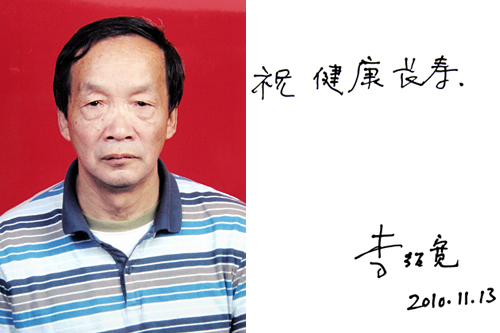 祝 健康长寿.
李绍宽
2010.11.13